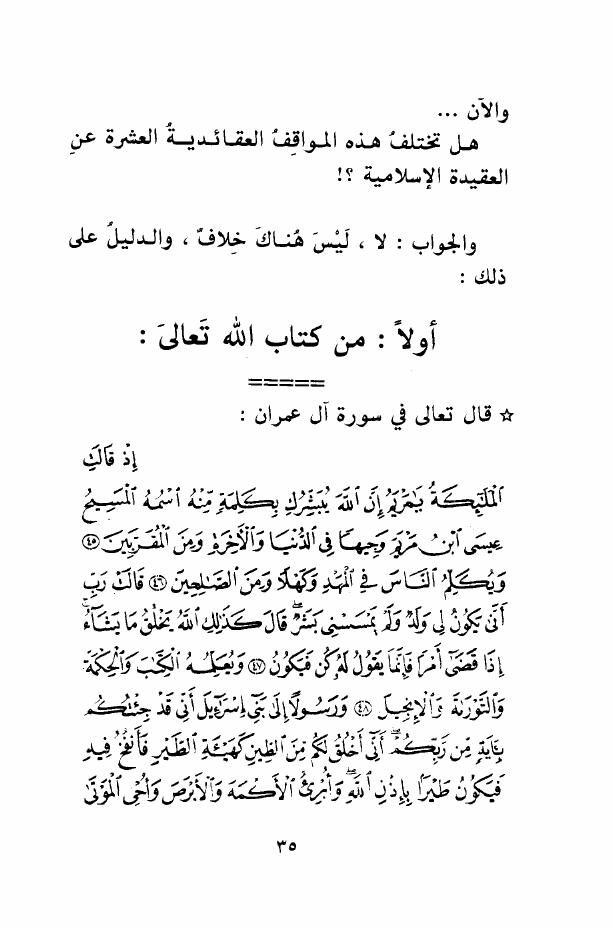 والآن ...
هل تختلفُ هذه المواقِفُ العقائديةُ العشرة عنِ
العقيدة الإسلامية ؟!
والجواب : لا ، لَيْسَ هُناكَ خِلافٌ ، والدليلُ على
ذلك :
أولاً : من كتاب الله تَعالىَ :
=====
☆ قال تعالى في سورة آل عمران :
إِذْ قَالَتِ
ٱلْمَلَٰٓئِكَةُ يَٰمَرْيَمُ إِنَّ ٱللَّهَ يُبَشِّرُكِ بِكَلِمَةٍ مِّنْهُ ٱسْمُهُ ٱلْمَسِيحُ
عِيسَى ٱبْنُ مَرْيَمَ وَجِيهًا فِى ٱلدُّنْيَا وَٱلْأَخِرَةِ وَمِنَ ٱلْمُقَرَّبِينَ ٤٥
وَيُكَلِّمُ ٱلنَّاسَ فِى ٱلْمَهْدِ وَكَهْلًا وَمِنَ ٱلصَّٰلِحِينَ ٤٦ قَالَتْ رَبِّ
أَنَّىٰ يَكُونُ لِى وَلَدٌ وَلَمْ يَمْسَسْنِى بَشَرٌ ۖ قَالَ كَذَٰلِكِ ٱللَّهُ يَخْلُقُ مَا يَشَآءُ ۚ
إِذَا قَضَىٰٓ أَمْرًا فَإِنَّمَا يَقُولُ لَهُۥ كُن فَيَكُونُ ٤٧ وَيُعَلِّمُهُ ٱلْكِتَٰبَ وَٱلْحِكْمَةَ
وَٱلتَّوْرَىٰةَ وَٱلْإِنجِيلَ ٤٨ وَرَسُولًا إِلَىٰ بَنِىٓ إِسْرَٰٓءِيلَ أَنِّى قَدْ جِئْتُكُم
بِـَٔايَةٍ مِّن رَّبِّكُمْ ۖ أَنِّىٓ أَخْلُقُ لَكُم مِّنَ ٱلطِّينِ كَهَيْـَٔةِ ٱلطَّيْرِ فَأَنفُخُ فِيهِ
فَيَكُونُ طَيْرًۢا بِإِذْنِ ٱللَّهِ ۖ وَأُبْرِئُ ٱلْأَكْمَهَ وَٱلْأَبْرَصَ وَأُحْىِ ٱلْمَوْتَىٰ
٣٥